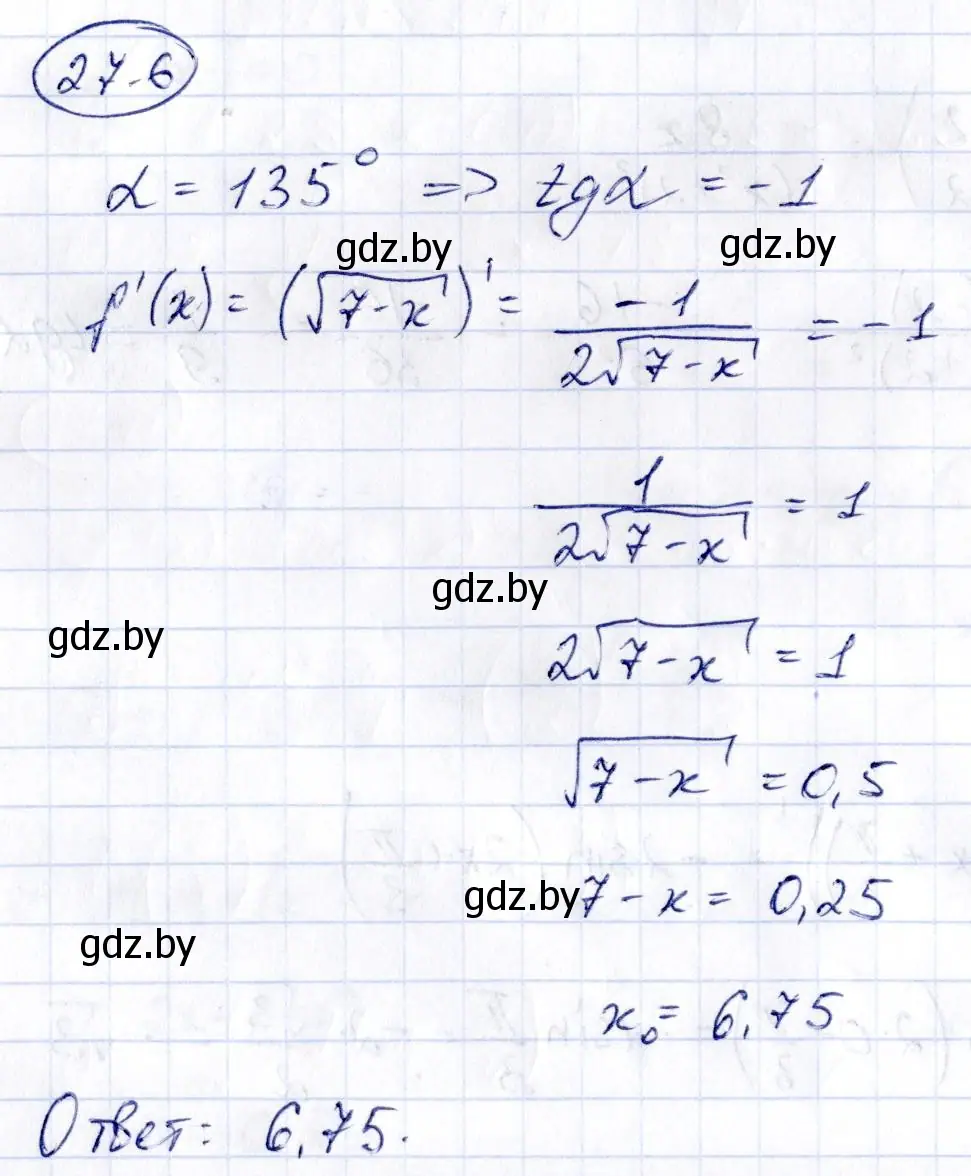 27.6
α = 135° => tgα = -1
gdz.by gdz.by
f'(x) = (√(7-x))' = -1/(2√(7-x)) = -1
1/(2√(7-x)) = 1
gdz.by
gdz.by
2√(7-x) = 1
√(7-x) = 0,5
gdz.by 7-x = 0,25
gdz.by
x₀ = 6,75
Ответ: 6,75.